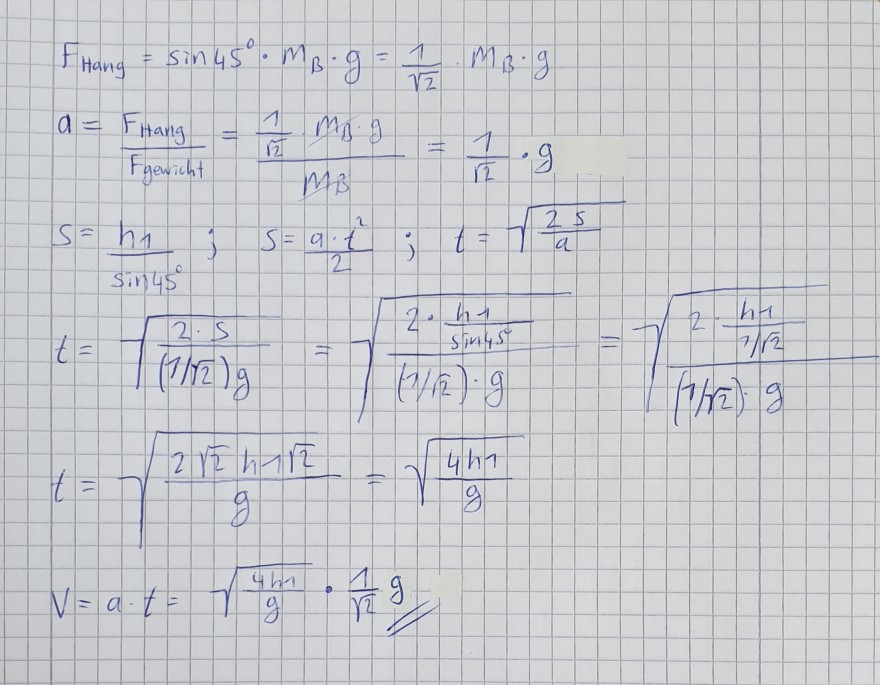 F_Hang = sin45° · m_B · g = 1/√2 · m_B · g
a = F_Hang/F_gewicht = (1/√2 · m_B · g)/m_B = 1/√2 · g
s = h1/sin45° ; s = a·t²/2 ; t = √(2s/a)
t = √(2·s/((1/√2)g)) = √((2·h1/sin45°)/((1/√2)·g)) = √((2·h1/(1/√2))/((1/√2)·g))
t = √(2√2 h1√2/g) = √(4h1/g)
V = a·t = √(4h1/g) · 1/√2 g